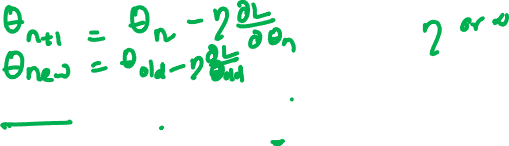 θn+1 = θn - η ∂L/∂θn
θnew = θold - η ∂L/∂θold
η or